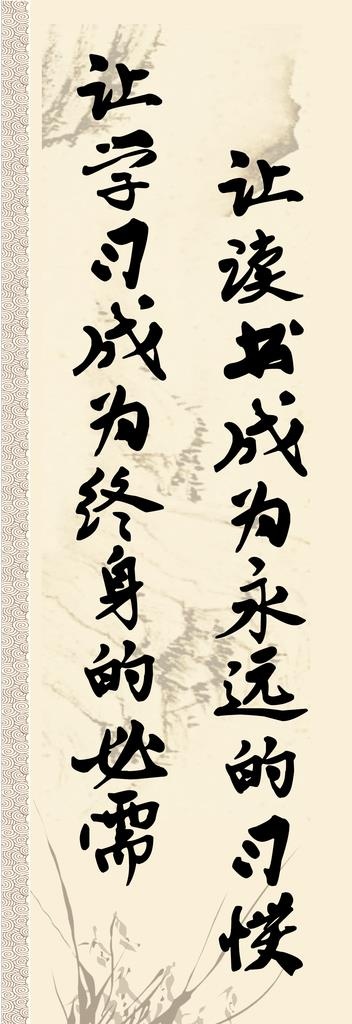 让学习成为终身的必需
让读书成为永远的习惯